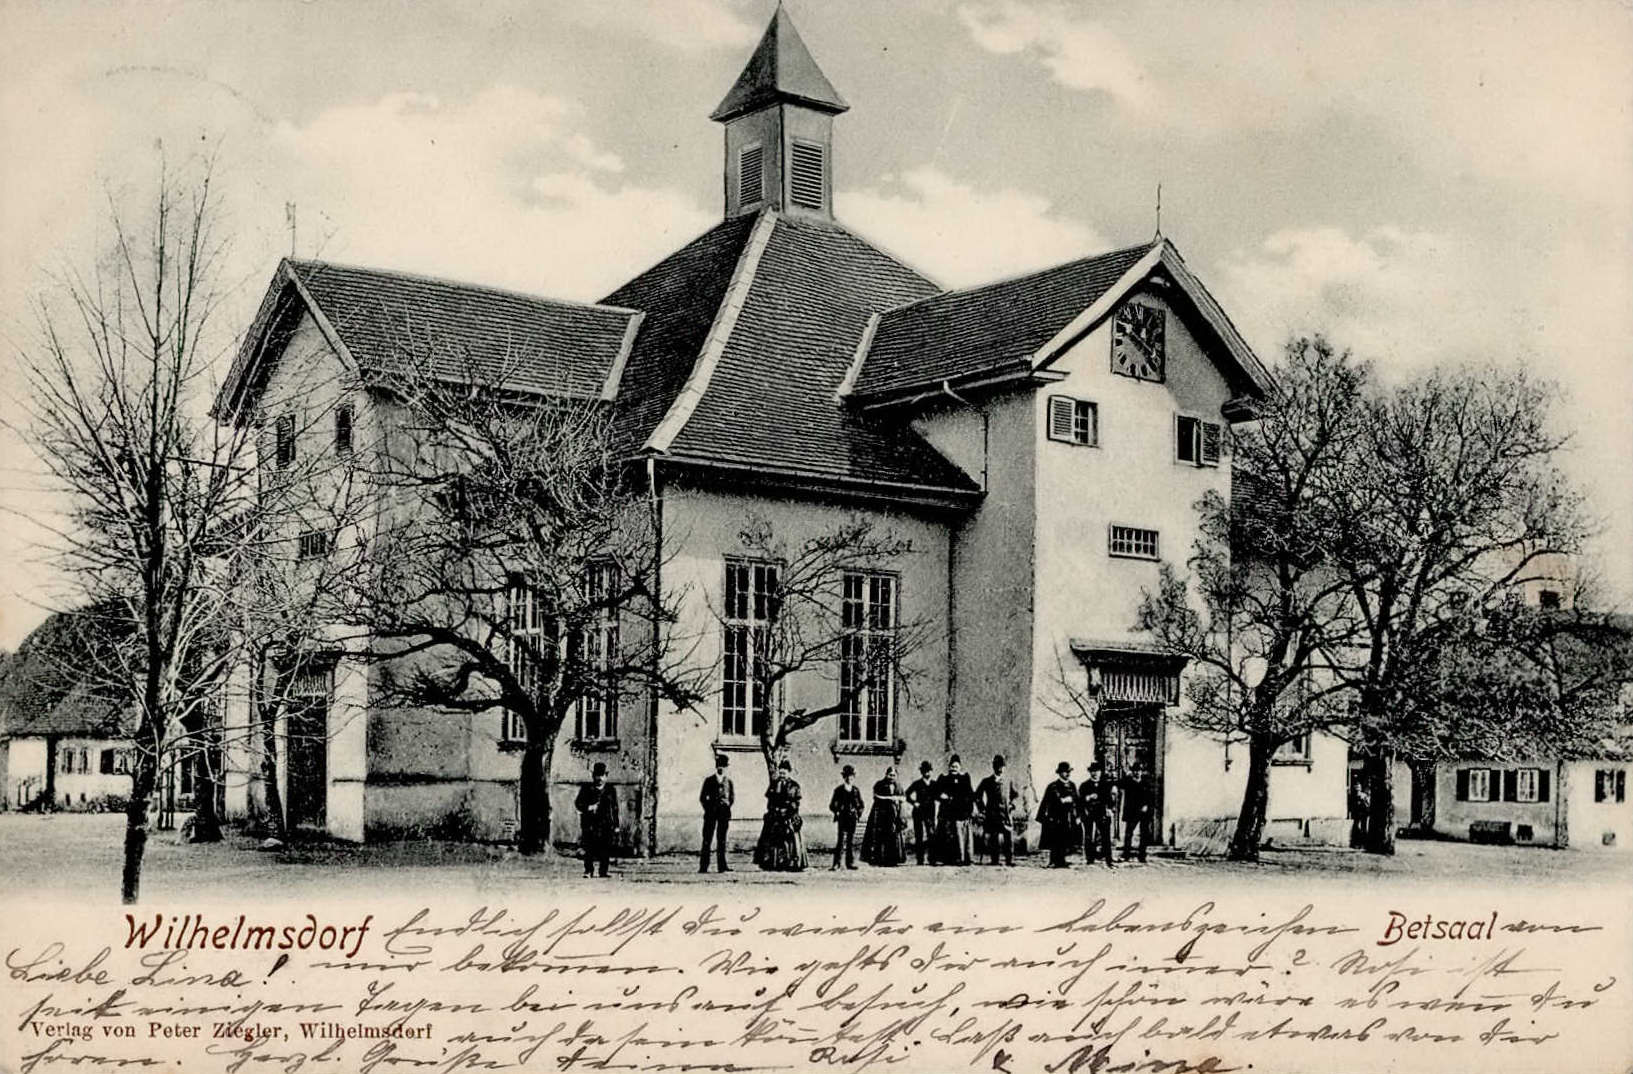 Wilhelmsdorf Endlich sollst du wieder ein Lebenszeichen Betsaal von
Liebe Lina! mir bekom̅en. Wie gehts dir auch im̅er? Rosi ist
seit einigen Tagen bei uns auf Besuch, wie schön wäre es wen̅ du
Verlag von Peter Ziegler, Wilhelmsdorf auch da sein kön̅test. Laß auch bald etwas von dir
hören. Herzl. Grüße deine Rosi & Mina.